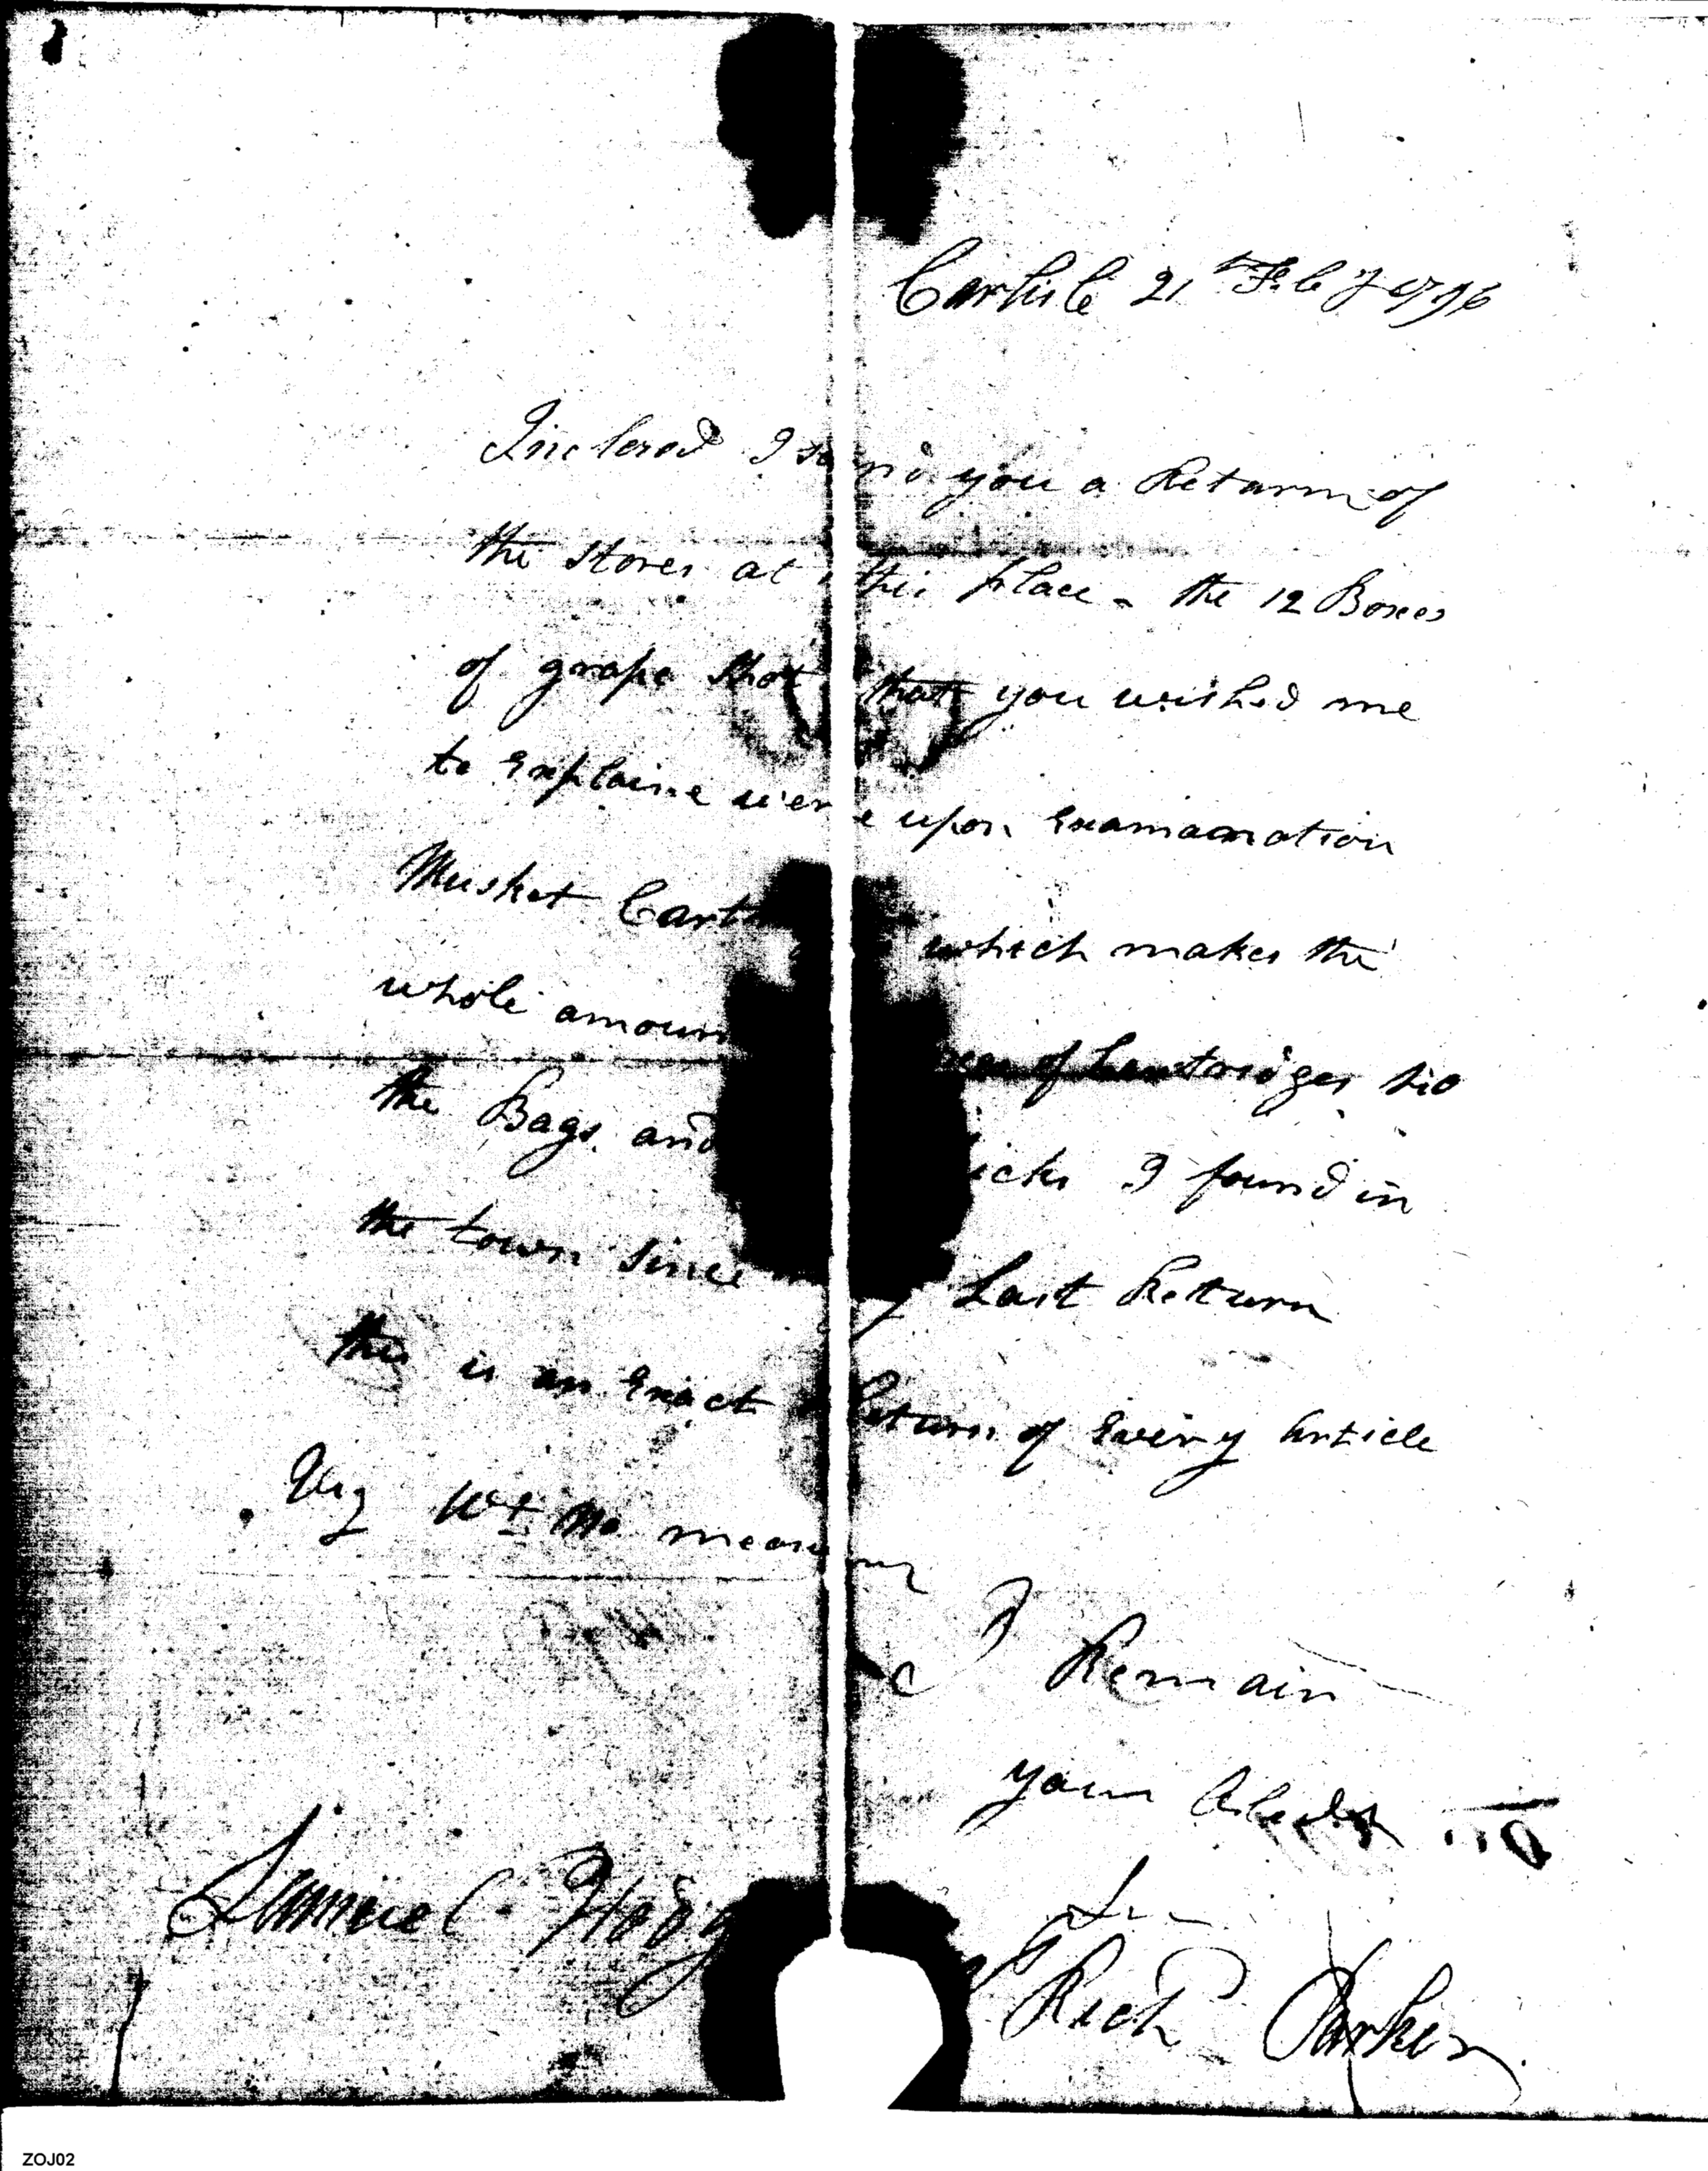 Carlisle 21st Feby 1796
Inclosed I send you a Return of
the Stores at this place - the 12 Boxes
of grape Shot that you wished me
to Explaine were upon Examamation
Musket Cart which makes the
whole amoun of Cartridges
the Bags and icks I found in
the town Since my Last Return
this is an Exact Return of Every Article
Viz Wt No measur
I Remain
your
Samuel Hodg
Richd Parker
ZOJ02